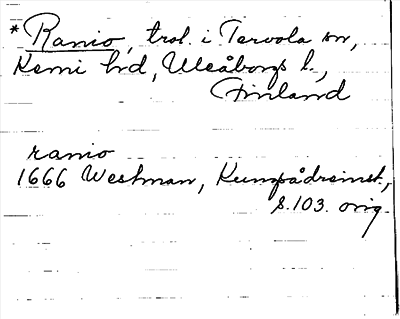 * Ramio, trol. i Tervola sn,
Kemi hd, Uleåborgs l.,
Finland
ramio
1666 Westman, Kungsådreinst.,
s. 103. orig.